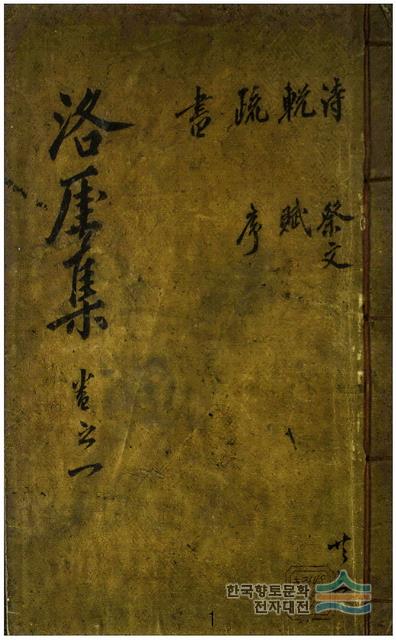 詩 祭文
輓 賦
疏 序
書
洛厓集 卷之一
共
한국향토문화
전자대전
1